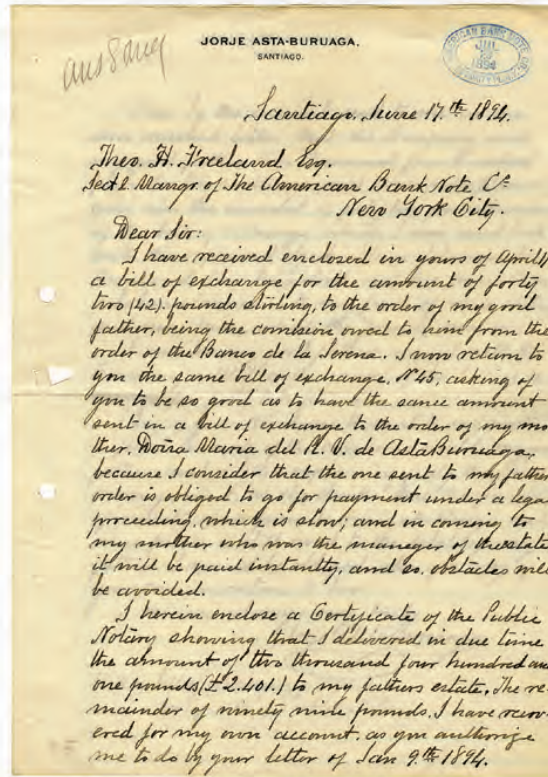 ans 8 aug
JORJE ASTA-BURUAGA.
SANTIAGO.
AMERICAN BANK NOTE CO.
JUL
1894
Santiago, June 17th 1894.
Theo. H. Freeland Esq.
Sect. & Mangr. of The American Bank Note Co
New York City.
Dear Sir:
I have received enclosed in yours of April
a bill of exchange for the amount of forty
two (42). pounds stirling, to the order of my good
father, being the comision owed to him from the
order of the Banco de la Serena. I now return to
you the same bill of exchange, No 45, asking of
you to be so good as to have the same amount
sent in a bill of exchange to the order of my mo
ther, Doña Maria del R. V. de AstaBuruaga,
because I consider that the one sent to my father
order is obliged to go for payment under a lega
proceeding, which is slow; and in coming to
my mother who was the maneger of the state
it will be paid instantly, and so, obstacles will
be avoided.
I herein enclose a Certificate of the Public
Notary showing that I delivered in due time
the amount of two thousand four hundred an
one pounds (£ 2.401.) to my fathers estate. The re-
mainder of ninety nine pounds, I have recov-
ered for my own account, as you authorize
me to do by your letter of Jan 9th 1894.